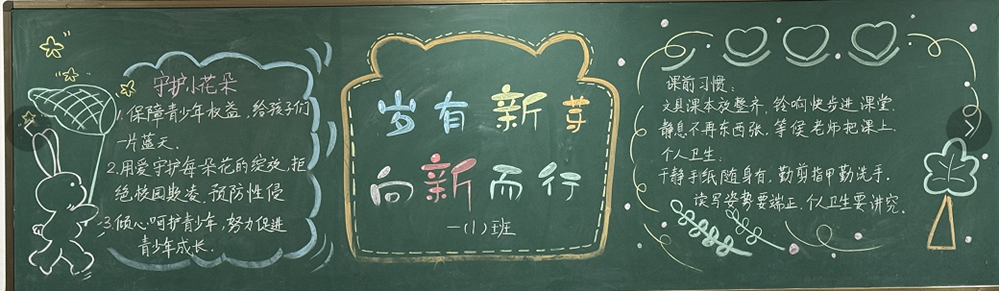 守护小花朵
1.保障青少年权益,给孩子们
一片蓝天.
2.用爱守护每朵花的绽放.拒
绝校园欺凌.预防性侵
3.倾心呵护青少年,努力促进
青少年成长.
岁有新芽
向新而行
一(1)班
课前习惯:
文具课本放整齐.铃响快步进课堂.
静息不再东西张.等候老师把课上.
个人卫生:
干静手纸随身有.勤剪指甲勤洗手.
读写姿势要端正.个人卫生要讲究.